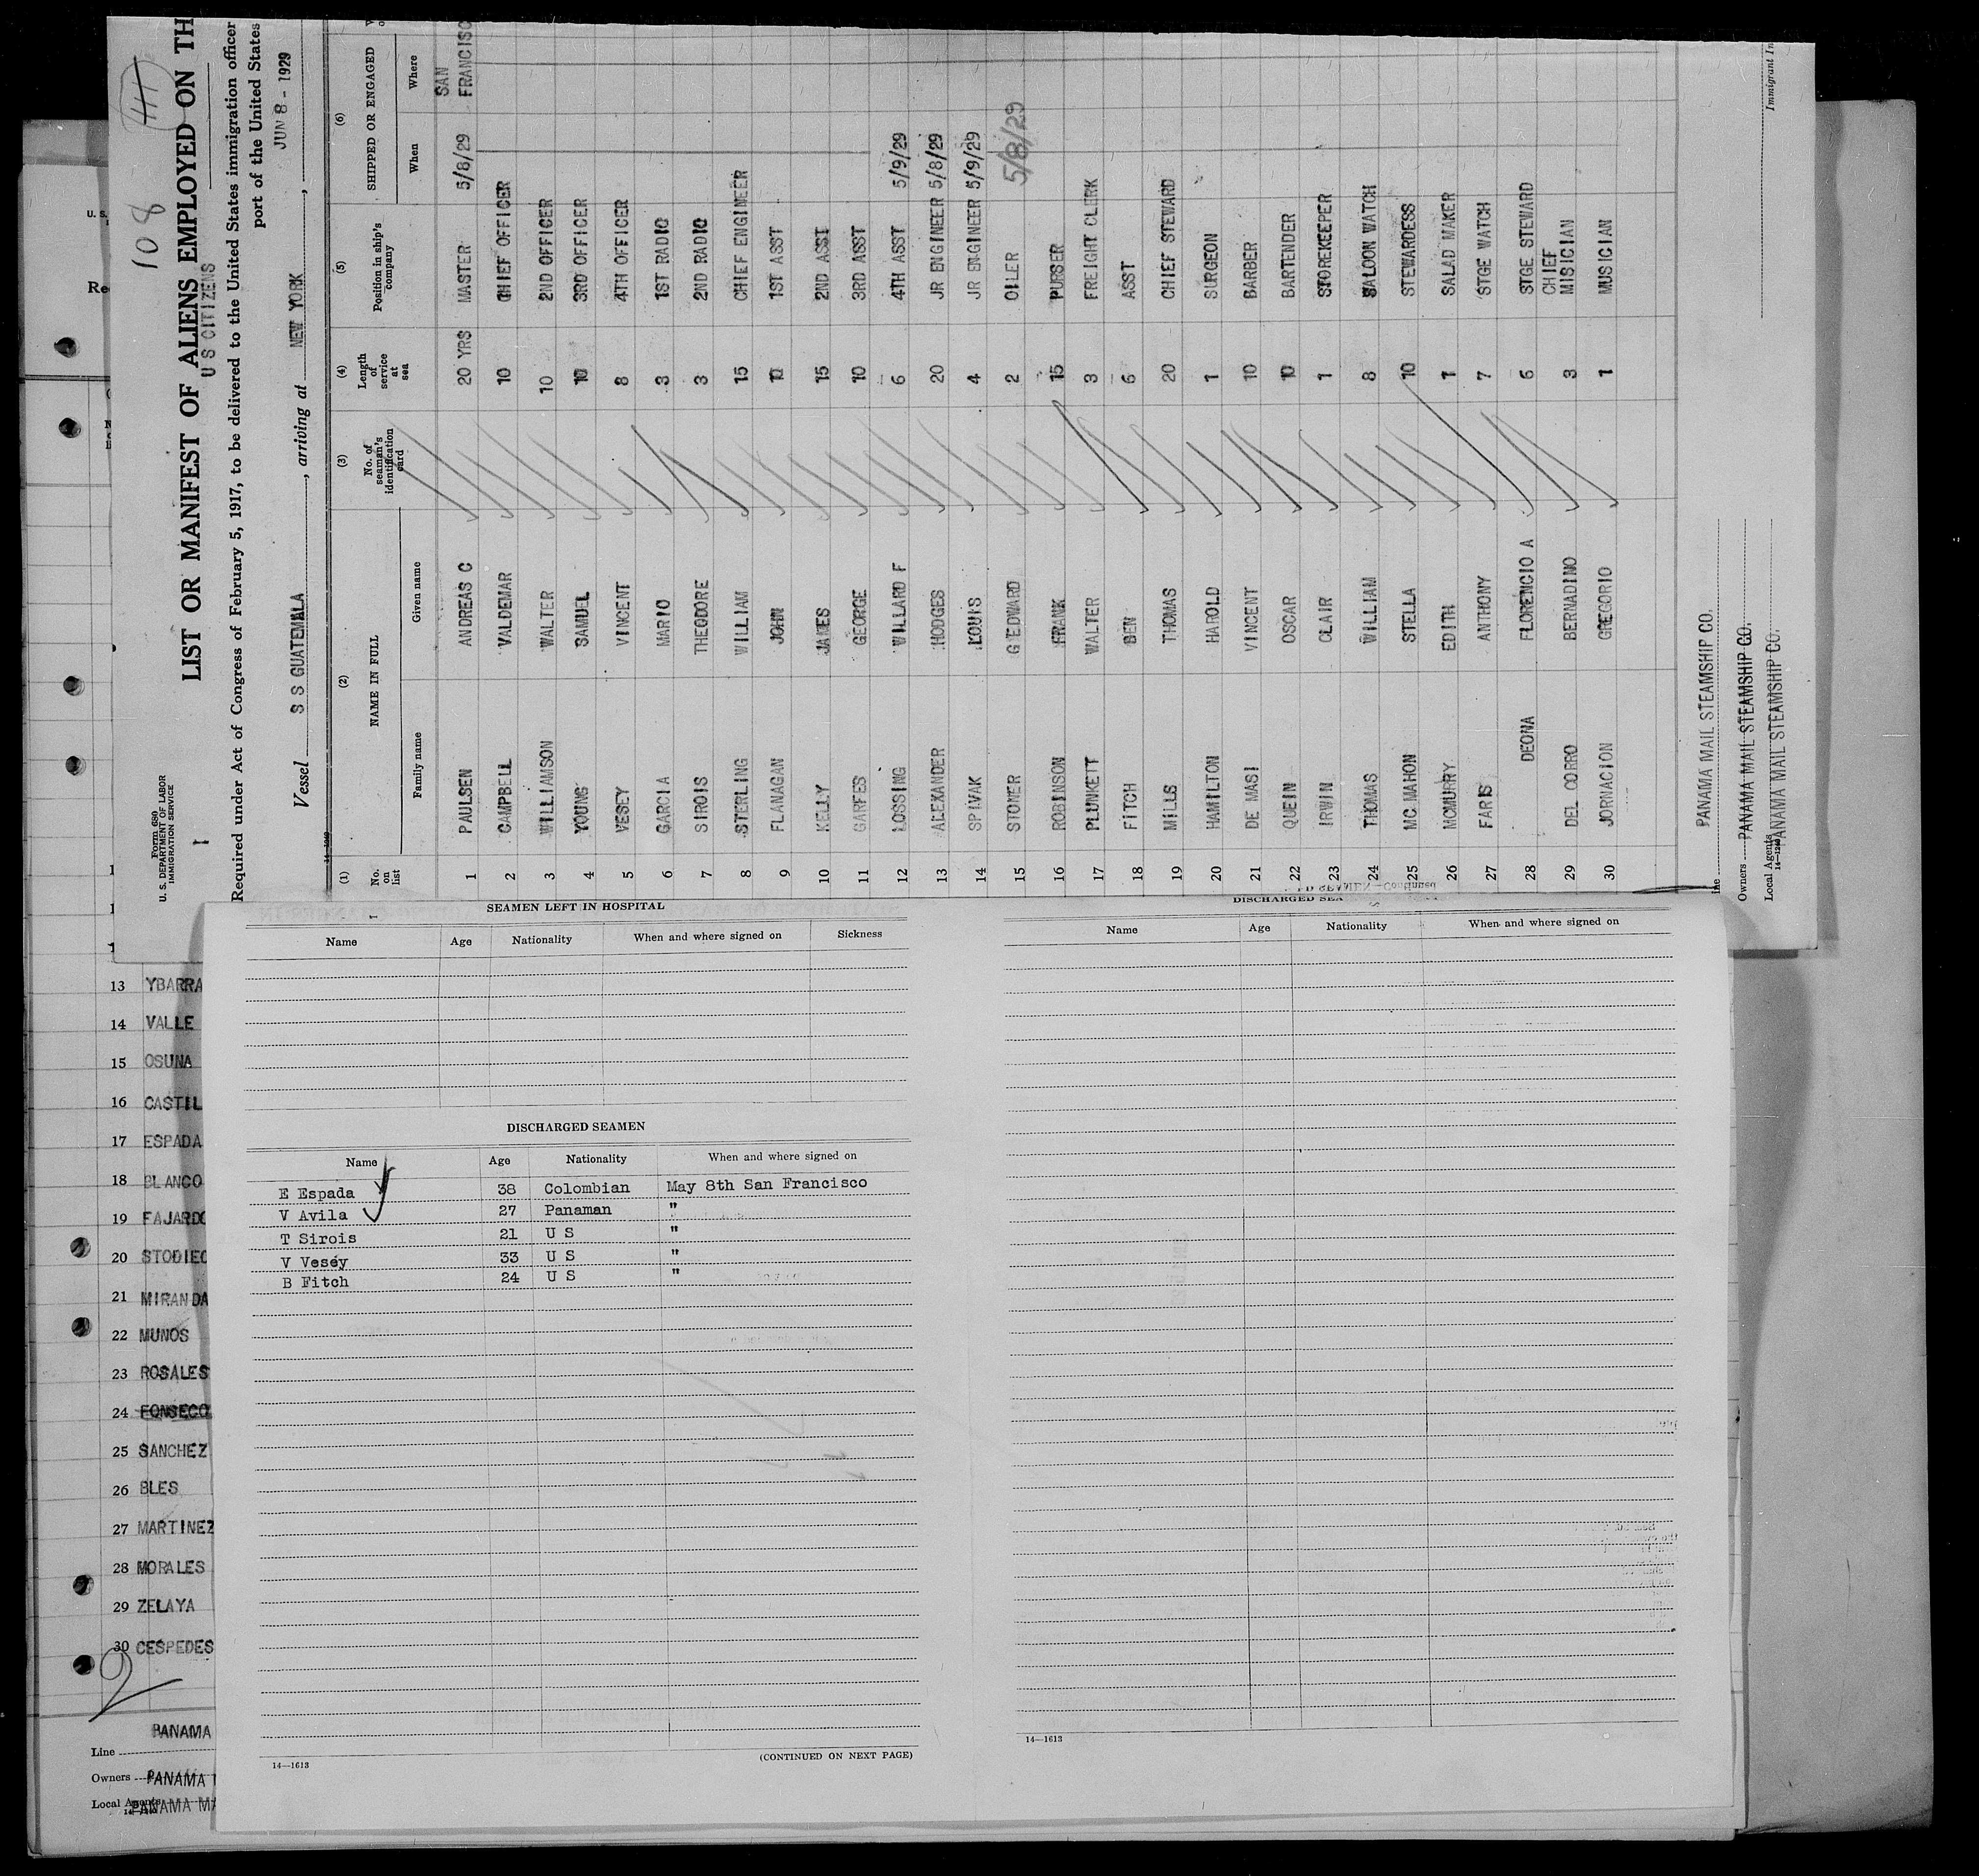 108
411
Form 680
U. S. DEPARTMENT OF LABOR
IMMIGRATION SERVICE
1
LIST OR MANIFEST OF ALIENS EMPLOYED ON TH
U S CITIZENS
Required under Act of Congress of February 5, 1917, to be delivered to the United States immigration officer
port of the United States
Vessel S S GUATEMALA, arriving at NEW YORK, JUN 8 - 1929
(1) (2) (3) (4) (5) (6)
No. on list NAME IN FULL No. of seaman's identification card Length of service at sea Position in ship's company SHIPPED OR ENGAGED
Family name Given name When Where
1 PAULSEN ANDREAS C 20 YRS MASTER 5/8/29 SAN FRANCISC
2 CAMPBELL VALDEMAR 10 CHIEF OFFICER
3 WILLIAMSON WALTER 10 2ND OFFICER
4 YOUNG SAMUEL 10 3RD OFFICER
5 VESEY VINCENT 8 4TH OFFICER
6 GARCIA MARIO 3 1ST RADIO
7 SIROIS THEODORE 3 2ND RADIO
8 STERLING WILLIAM 15 CHIEF ENGINEER
9 FLANAGAN JOHN 10 1ST ASST
10 KELLY JAMES 15 2ND ASST
11 GARFES GEORGE 10 3RD ASST
12 LOSSING WILLARD F 6 4TH ASST 5/9/29
13 ALEXANDER HODGES 20 JR ENGINEER 5/8/29
14 SPIVAK LOUIS 4 JR ENGINEER 5/9/29
15 STONER G EDWARD 2 OILER 5/8/29
16 ROBINSON FRANK 15 PURSER
17 PLUNKETT WALTER 3 FREIGHT CLERK
18 FITCH BEN 6 ASST
19 MILLS THOMAS 20 CHIEF STEWARD
20 HAMILTON HAROLD 1 SURGEON
21 DE MASI VINCENT 10 BARBER
22 QUEIN OSCAR 10 BARTENDER
23 IRWIN CLAIR 1 STOREKEEPER
24 THOMAS WILLIAM 8 SALOON WATCH
25 MC MAHON STELLA 10 STEWARDESS
26 MCMURRY EDITH 1 SALAD MAKER
27 FARIS ANTHONY 7 STGE WATCH
28 DEONA FLORENCIO A 6 STGE STEWARD
29 DEL CORRO BERNADINO 3 CHIEF MISICIAN
30 JORNACION GREGORIO 1 MUSICIAN
ine PANAMA MAIL STEAMSHIP CO.
Owners PANAMA MAIL STEAMSHIP CO.
Local Agents PANAMA MAIL STEAMSHIP CO.
14—1240
Immigrant In
U. S.
Re
13 YBARRA
14 VALLE
15 OSUNA
16 CASTIL
17 ESPADA
18 BLANCO
19 FAJARDO
20 STODIEC
21 MIRANDA
22 MUNOS
23 ROSALES
24 FONSECO
25 SANCHEZ
26 BLES
27 MARTINEZ
28 MORALES
29 ZELAYA
30 CESPEDES
2
Line PANAMA
Owners PANAMA
Local Agents PANAMA MA
SEAMEN LEFT IN HOSPITAL
Name Age Nationality When and where signed on Sickness
DISCHARGED SEAMEN
Name Age Nationality When and where signed on
E Espada 38 Colombian May 8th San Francisco
V Avila 27 Panaman "
T Sirois 21 U S "
V Vesey 33 U S "
B Fitch 24 U S "
14—1613
(CONTINUED ON NEXT PAGE)
DISCHARGED SEA
Name Age Nationality When and where signed on
14—1613